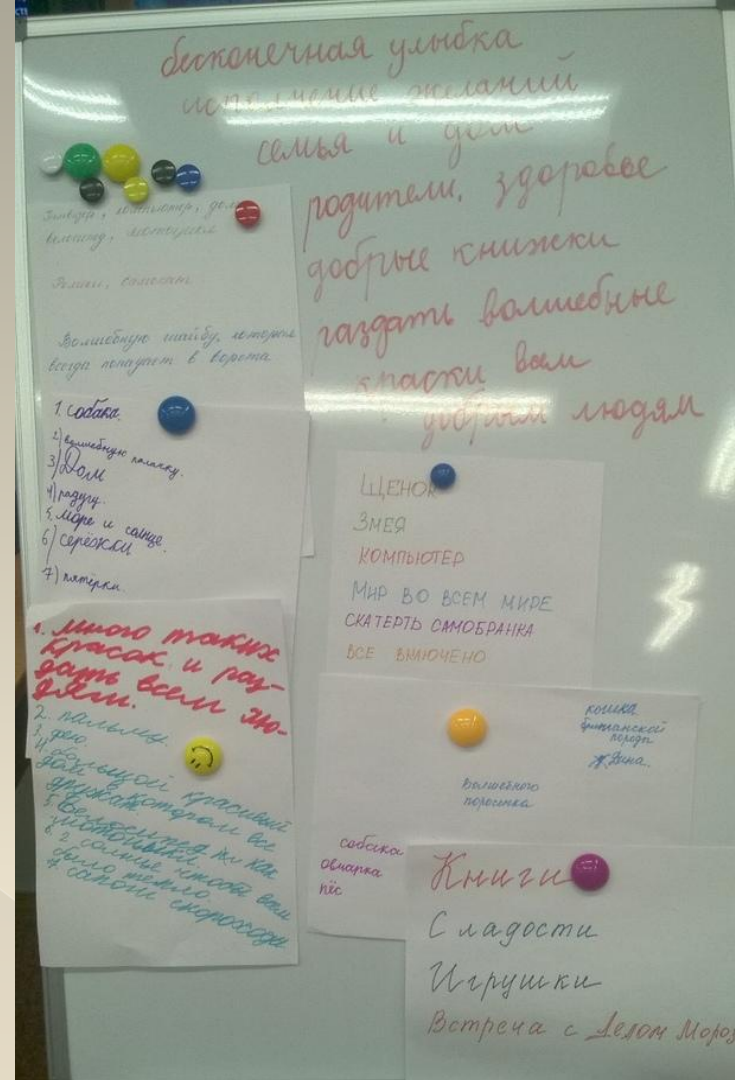 бесконечная улыбка
исполнение желаний
семья и дом
родители, здоровье
добрые книжки
раздать волшебные
краски вам
добрым людям
компьютер, дом
велосипед, мотоцикл
Ролики, самокат
Волшебную шайбу, которая
всегда попадает в ворота
1. Собака.
2) волшебную палочку.
3) Дом
4) радугу.
5. море и солнце.
6) серёжки
7) пятёрки.
ЩЕНОК
ЗМЕЯ
КОМПЬЮТЕР
МИР ВО ВСЕМ МИРЕ
СКАТЕРТЬ САМОБРАНКА
ВСЕ ВКЛЮЧЕНО
1. много таких
красок и раз-
дать всем лю-
дям.
2. пальму.
3. фею
4. большой красивый
дом в котором все
дружат.
5. Велосипед как
мотоцикл
6. 2 солнце чтобы всем
было тепло.
7. сапоги скороходы
кошка
британской
породы
Дина.
Волшебного
поросенка
собака
овчарка
пёс
Книги
Сладости
Игрушки
Встреча с Делом Мороз